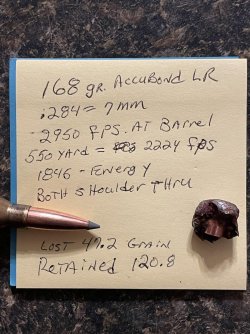 168 gr. AccuBond LR
.284 = 7mm
2950 fps. AT BArrel
550 yard = 2224 fps
1846 - Energy
BoTH SHoulder THru
LosT 47.2 GrAin
ReTAined 120.8